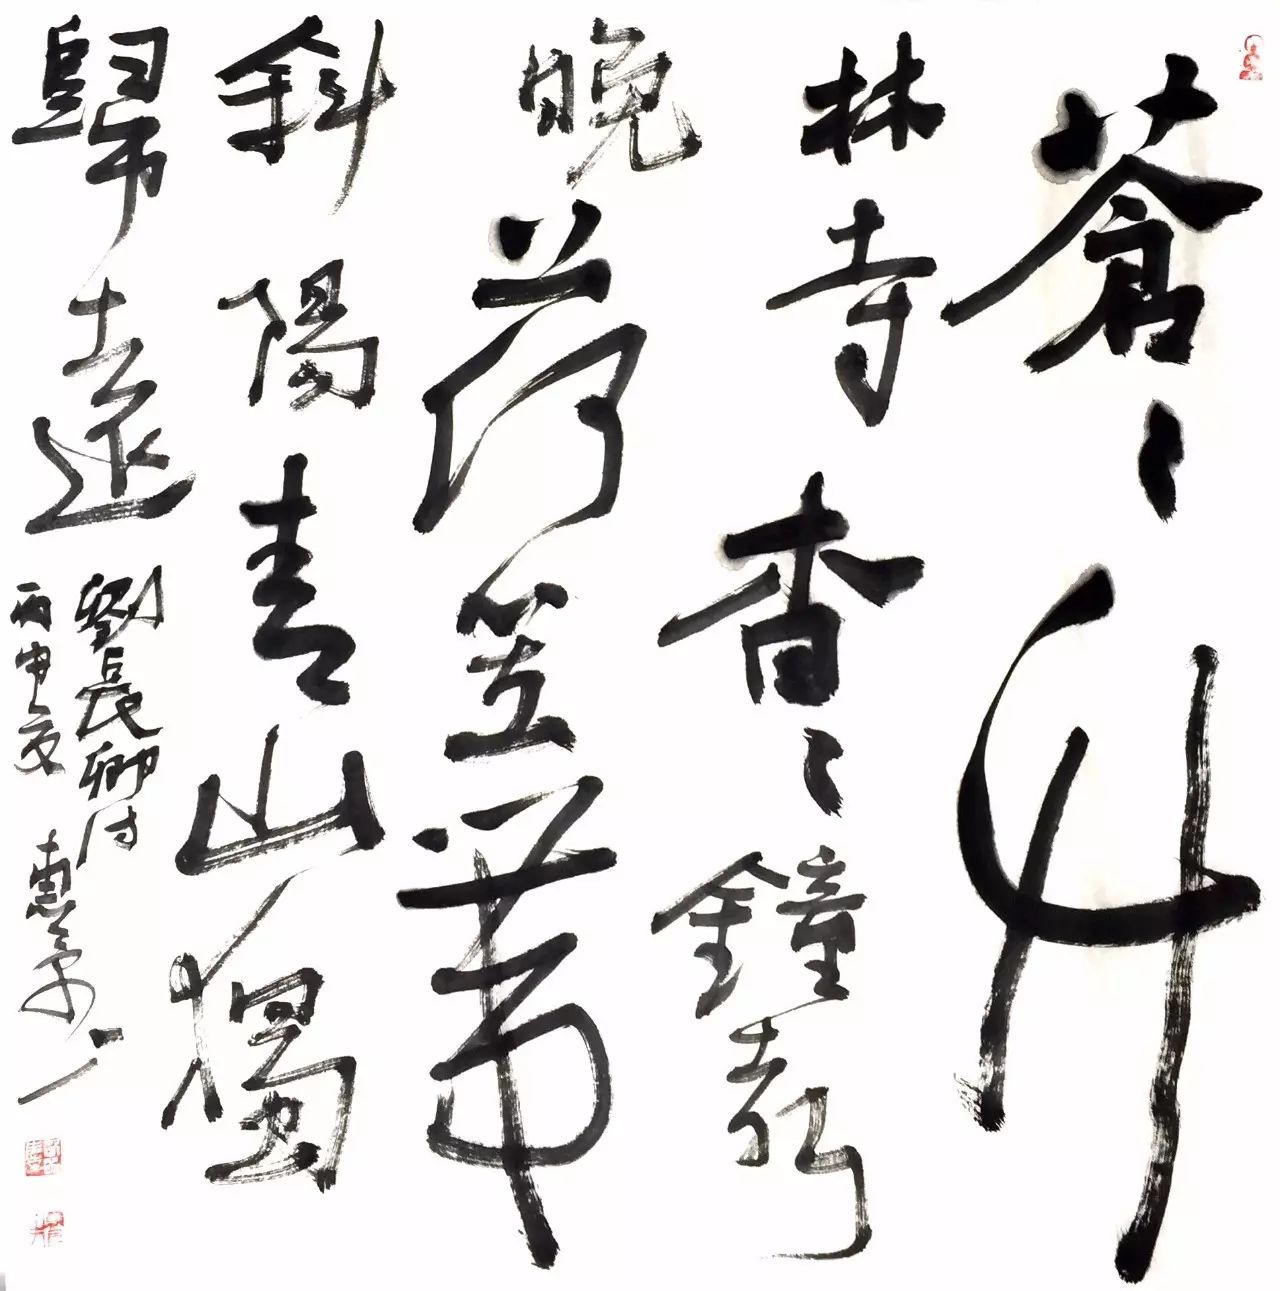 蒼〻竹
林寺杳〻鐘聲
晚荷笠帶
斜陽青山獨
歸遠
劉長卿诗
丙申夏